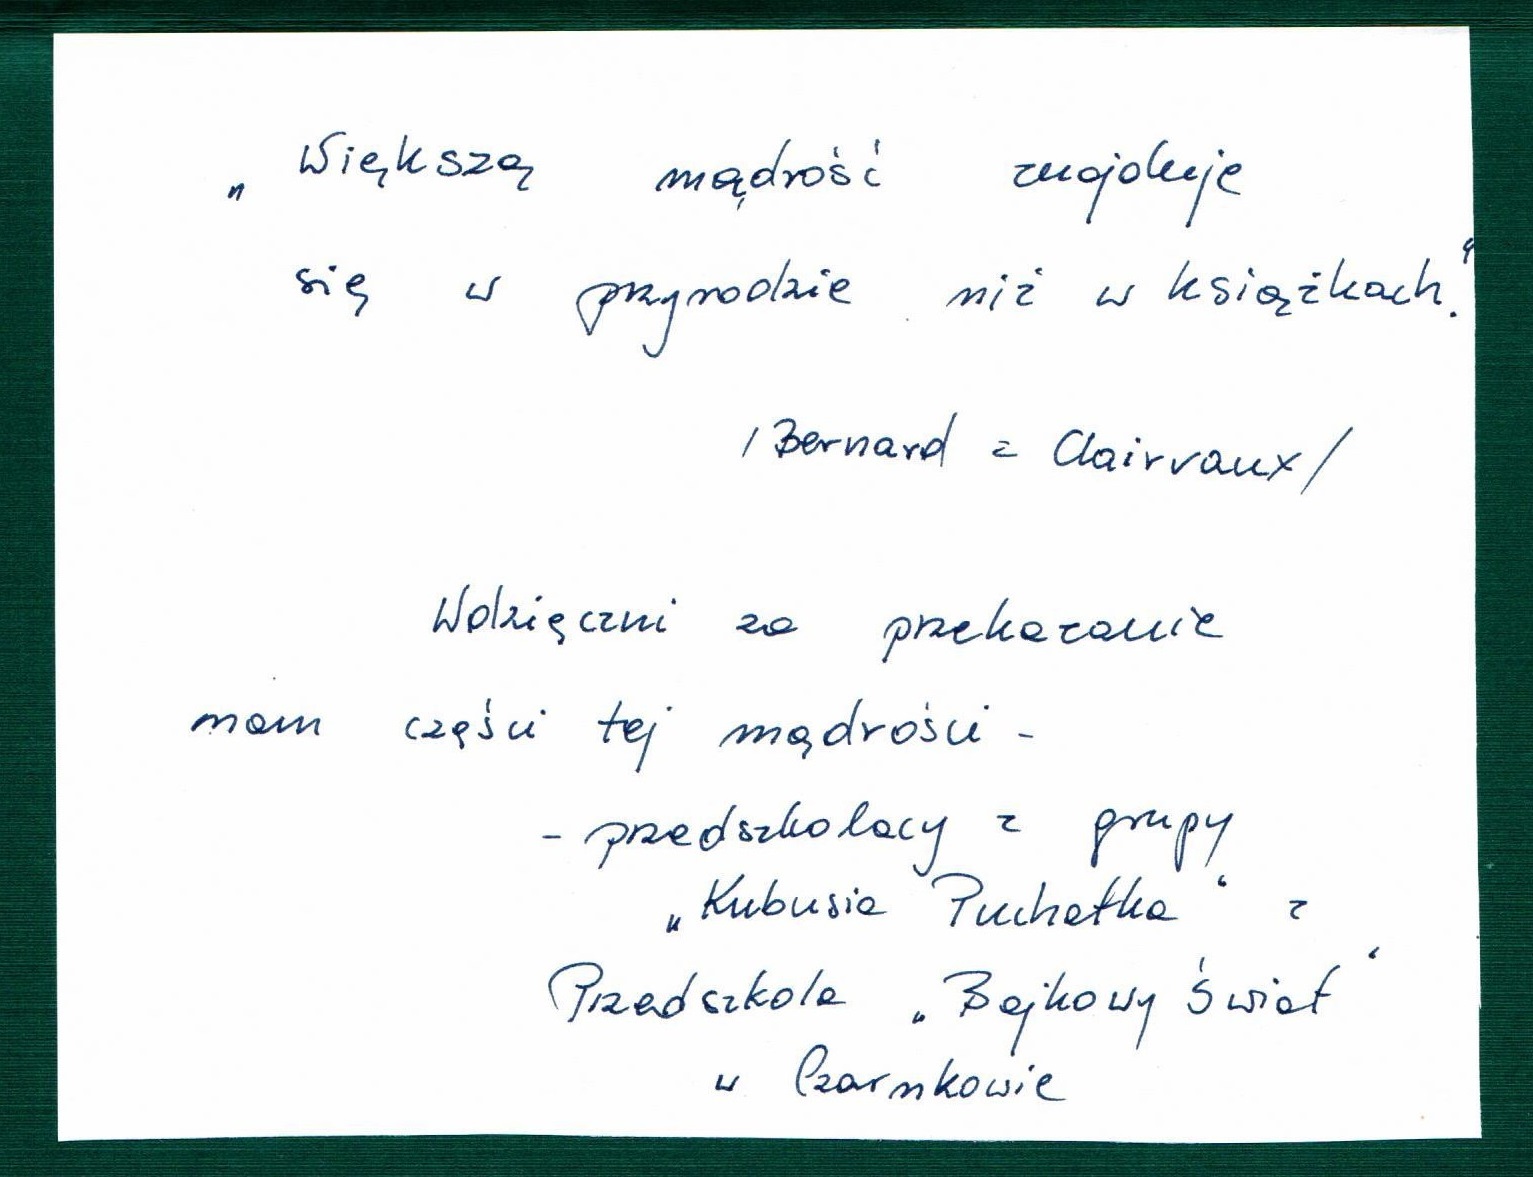 „Większą mądrość znajduje
się w przyrodzie niż w książkach."
/Bernard z Clairvaux/
Wdzięczni za przekazanie
nam części tej mądrości -
- przedszkolacy z grupy
„Kubusia Puchatka" z
Przedszkola „Bajkowy Świat"
w Czarnkowie